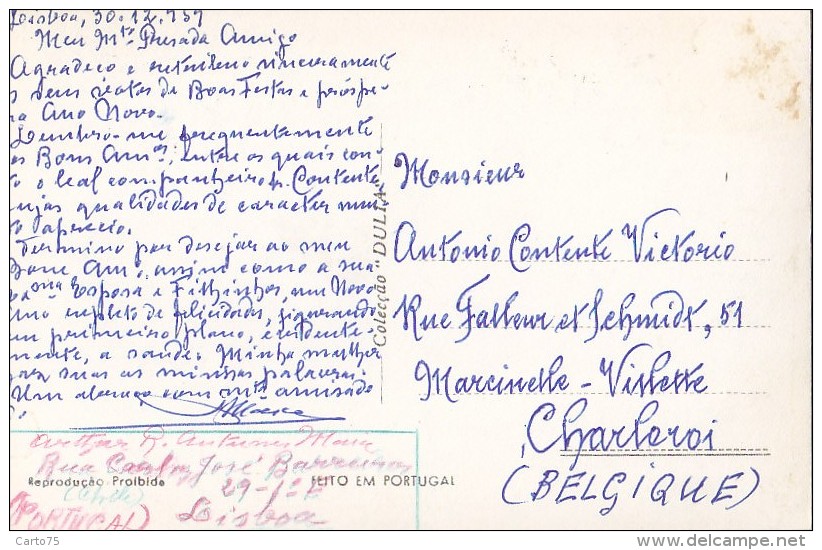 Lisboa, 30.12.959
Meu Mto Presado Amigo
Agradeço e retribuo sinceramente
os seus votos de Boas Festas e próspe-
ro Ano Novo.
Lembro-me frequentemente
os Bons Amos, entre os quais con-
to o leal companheiro Contente
cujas qualidades de caracter muito
aprecio.
Termino por desejar ao meu
Bom Amo, assim como a sua
Esposa e Filhinhos, um Novo
Ano repleto de felicidades, figurando
em primeiro plano, evidente-
mente, a saúde. Minha mulher
faz suas as minhas palavras.
Um abraço com mta amizade
Colecção "DULIA"
Monsieur
Antonio Contente Victorio
Rue Falleur et Schmidt, 51
Marcinelle - Villette
Charleroi
(BELGIQUE)
Arthur R. Antunes Maia
Rua Carlos José Barreiros
Reprodução Proibida
29-1º E
FEITO EM PORTUGAL
(PORTUGAL)
Lisboa
Carto75
delcampe.net